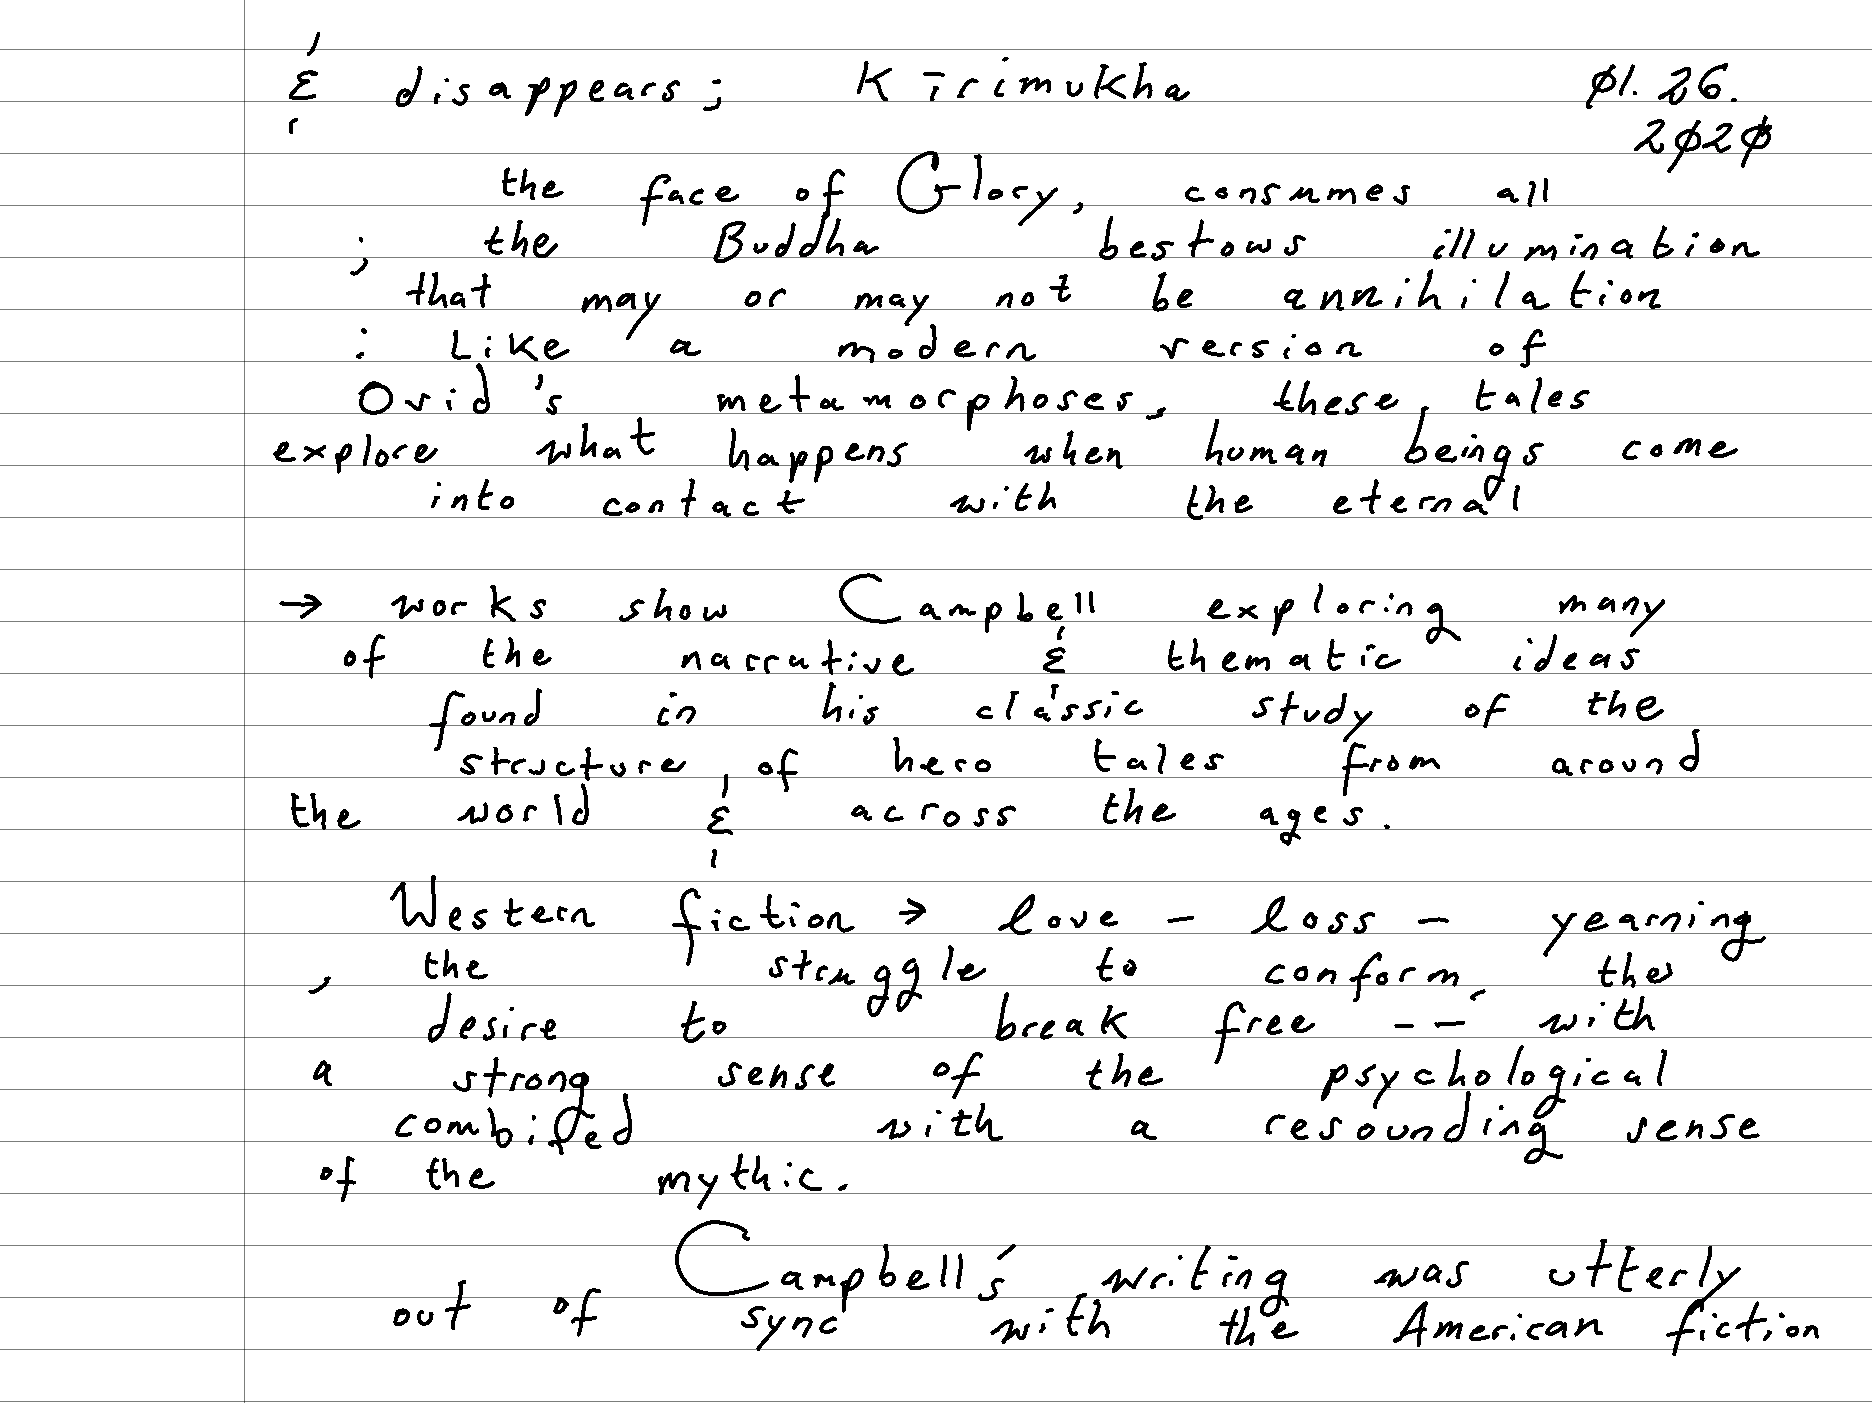 & disappears; Kīrimukha 01.26.
2020
the face of Glory, consumes all
; the Buddha bestows illumination
that may or may not be annihilation
: Like a modern version of
Ovid's metamorphoses, these tales
explore what happens when human beings come
into contact with the eternal
→ works show Campbell exploring many
of the narrative & thematic ideas
found in his classic study of the
structure of hero tales from around
the world & across the ages.
Western fiction → love - loss - yearning
, the struggle to conform, the
desire to break free -- with
a strong sense of the psychological
combined with a resounding sense
of the mythic.
Campbell's writing was utterly
out of sync with the American fiction